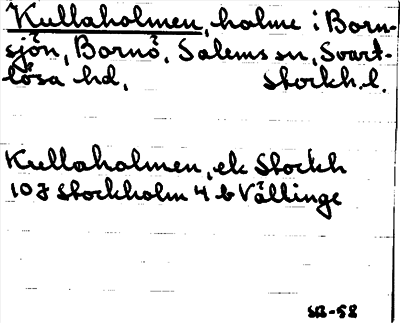 Kullaholmen, holme i Born-
sjön, Bornö, Salems sn, Svart-
lösa hd, Stockh. l.
Kullaholmen, ek Stockh
10 J Stockholm 4 b Vällinge
SB-58